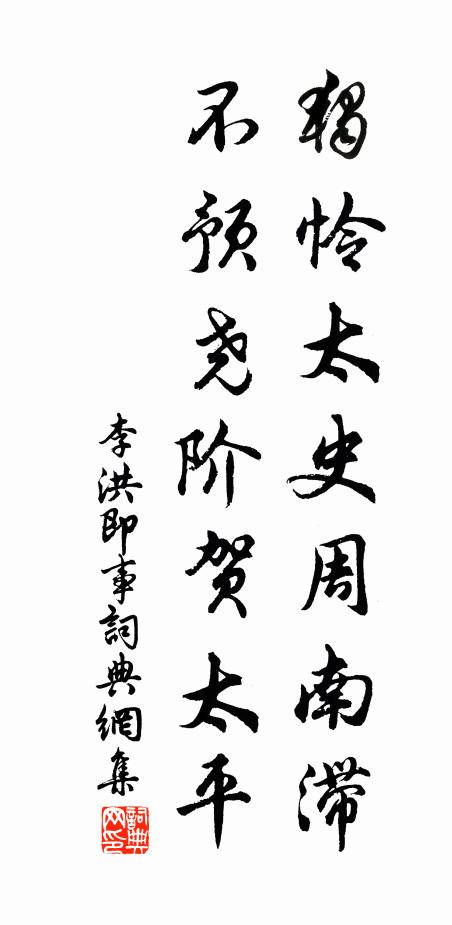 獨怜太史周南滯
不預尧阶贺太平
李洪即事詞典網集
詞典网印